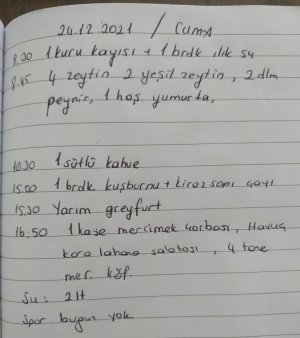 24.12.2021 / CUMA
8.30 1 kuru kayısı + 1 brdk ılık su
8.45 4 zeytin 2 yeşil zeytin, 2 dlm
peynir, 1 haş yumurta,
10.30 1 sütlü kahve
15.00 1 brdk kuşburnu + kiraz sapı çayı
15.30 Yarım greyfurt
16:50 1 kase mercimek çorbası, Havuç
kara lahana salatası, 4 tane
mer. köf.
Su: 2 lt
Spor bugün yok